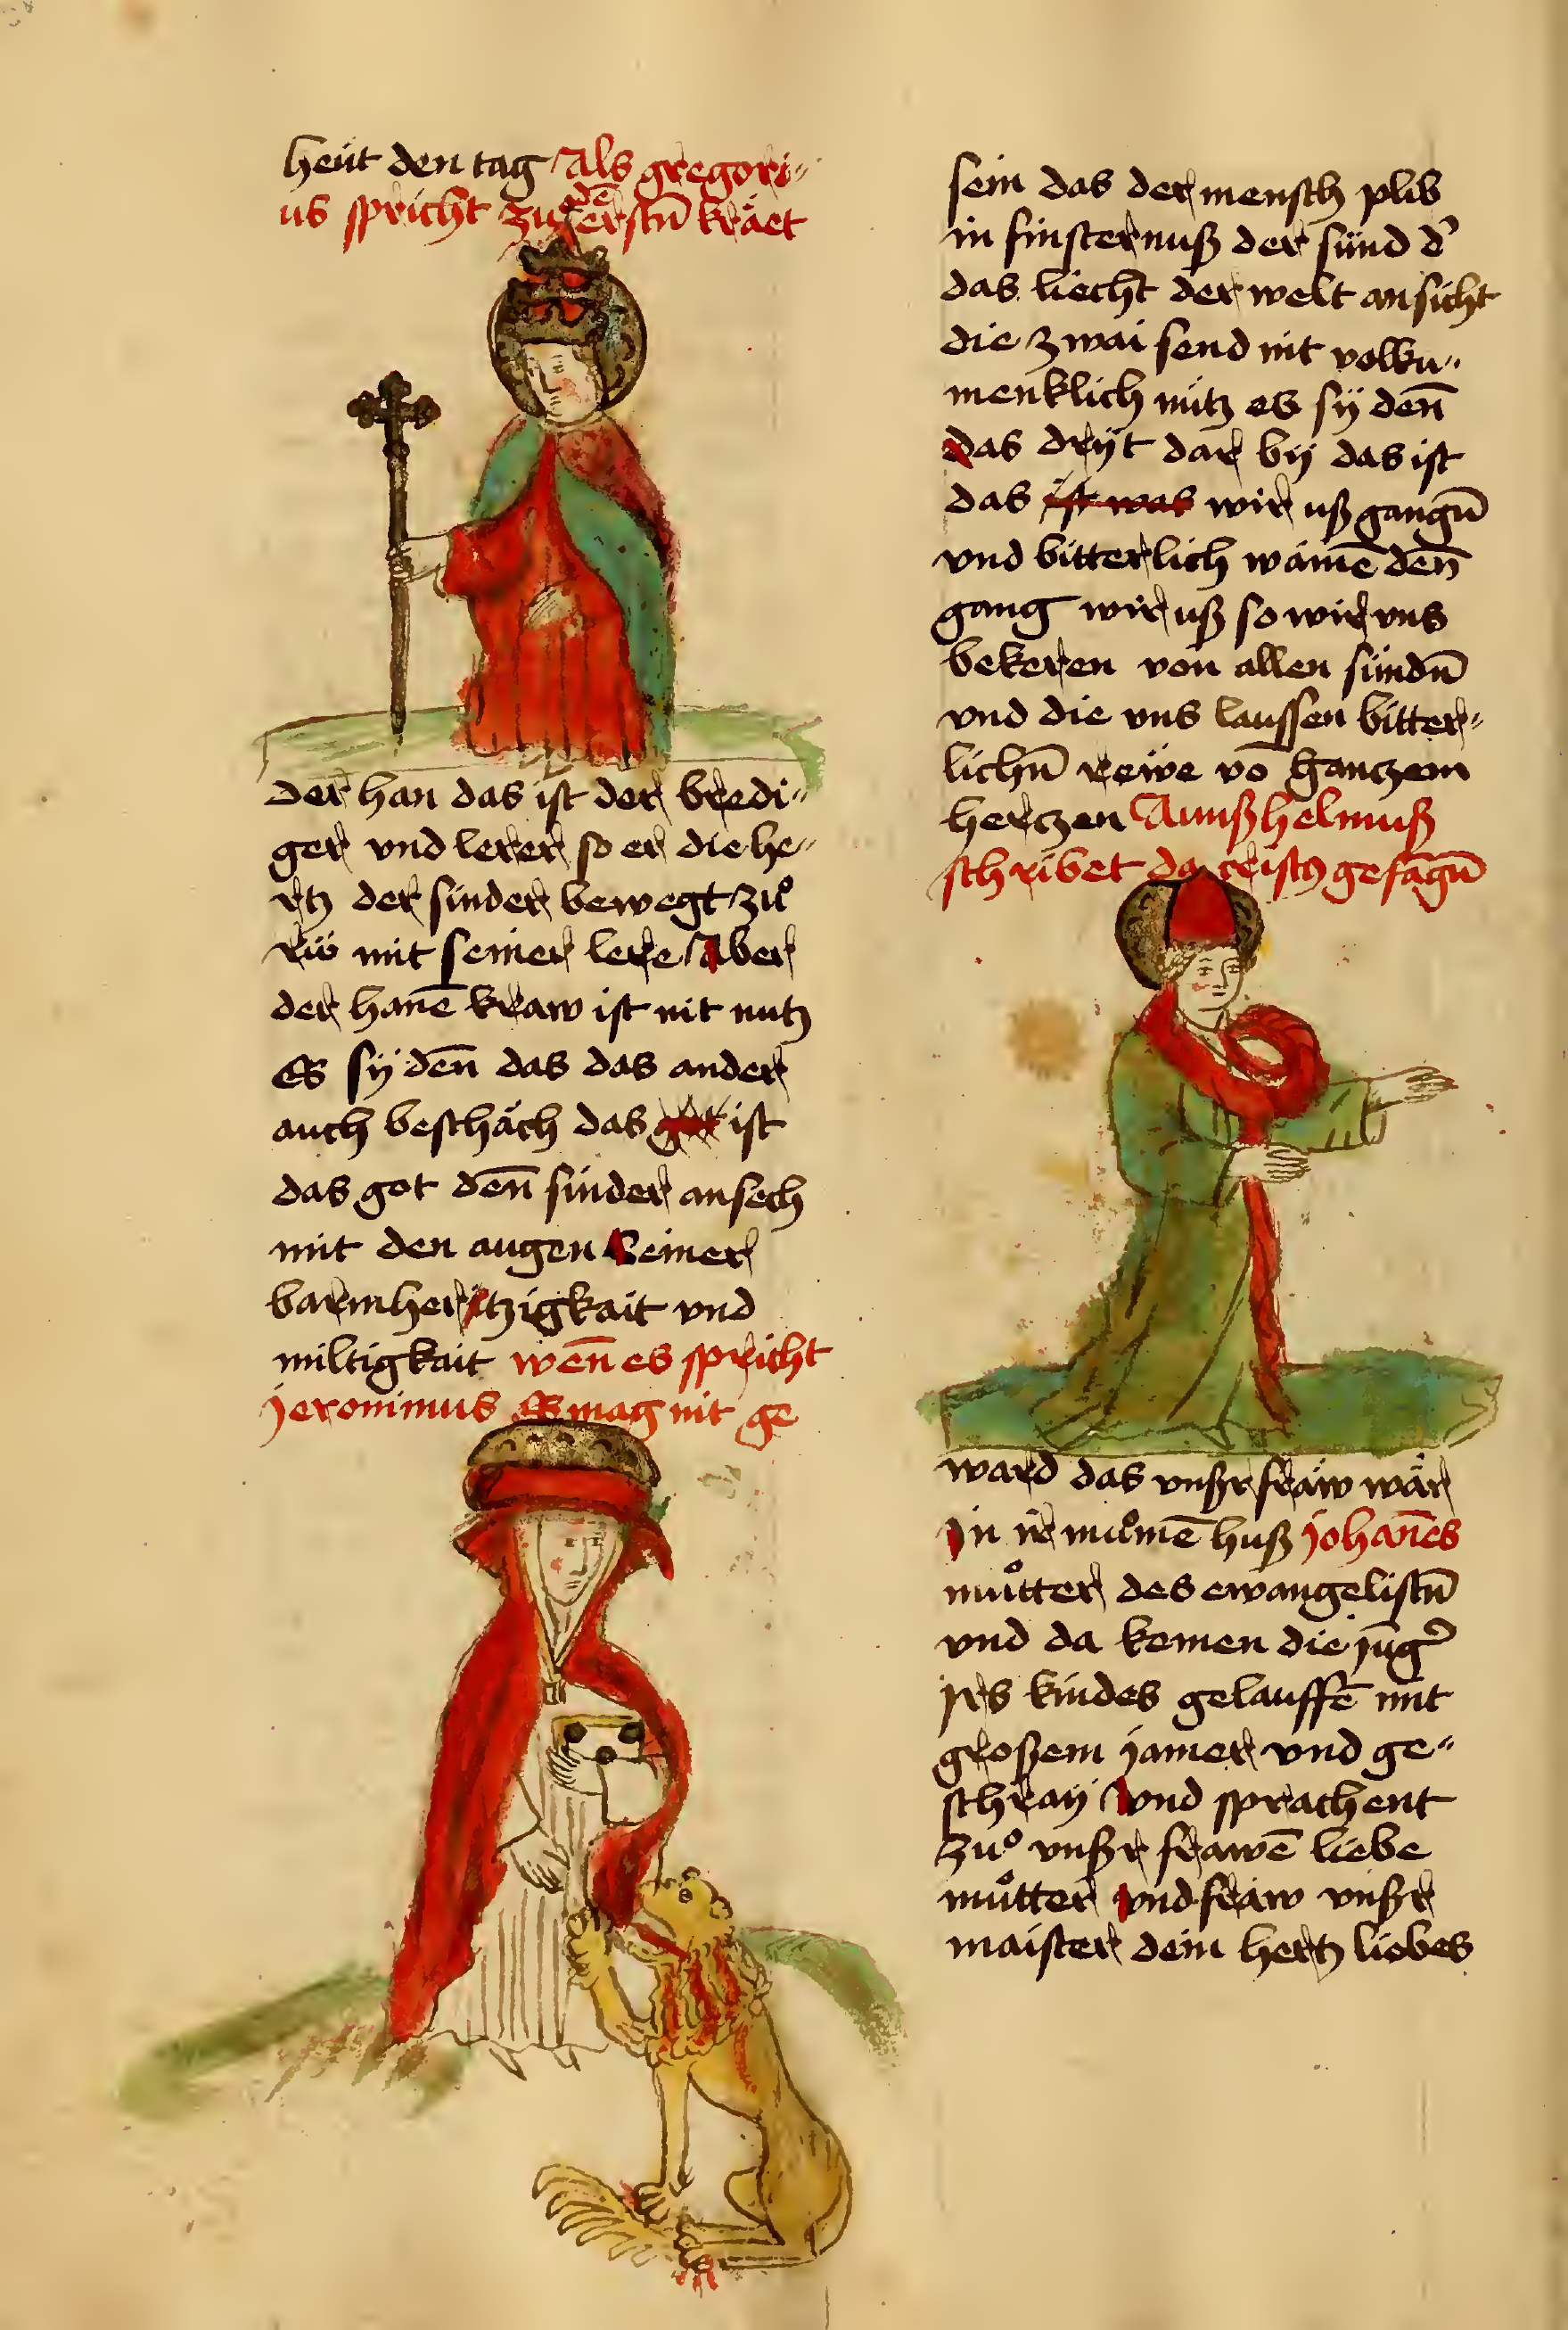 heüt den tag Als gregori„
us spricht zu dē erstn̄ kräet
der han das ist der bredi„
ger vnd lerer so er die he„
rtz der sinder bewegt zuͦ
rüͦ mit seiner lere Aber
der hanē kraw ist nit nutz
Es sÿ den̄ das das ander
auch beschäch das got ist
das got den̄ sinder ansech
mit den augen seiner
barmhertzigkait vnd
miltigkait wen̄ es spricht
jeronimus Es mag nit ge
sein das der mensch plib
in finsternuß der sünd dʼ
das liecht der welt ansicht
die zwai send nit volku„
menklich nütz es sÿ den̄
das drÿt dar bÿ das ist
das ist was wir uß gangn̄
vnd bitterlich wainē den̄
gang wir uß so wir vns
bekeren von allen sündn̄
vnd die vns laussen bitter„
lichn̄ reẅe vō gantzem
hertzen Annßhelmuß
schribet da cristꝯ gefāgn̄
ward das vnßr fräw wär
In ir muͦmē huß johan̄es
muͦtter des ewangelistn̄
vnd da kemen die jūgʼ
jrs kindes gelauffē mit
großem jamer vnd ge„
schraÿ vnd sprachent
zuͦ vnßr frawē liebe
muͦtter vnd fräw vnßr
maister dein hertz liebes